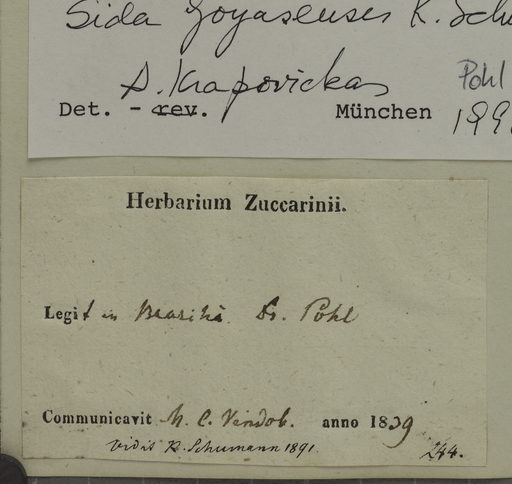 Sida goyasensis K. Schu
A. Krapovickas Pohl
Det. - rev. München 199
Herbarium Zuccarinii.
Legit in Brasilia Dr. Pohl
Communicavit M. C. Vindob. anno 1839
Vidit K. Schumann 1891.
244.